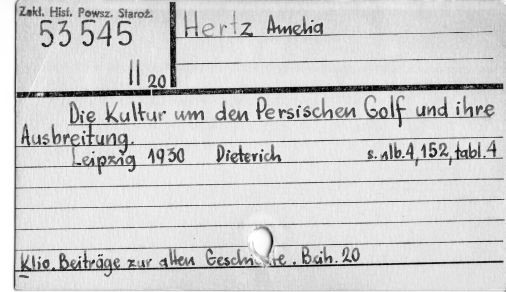 Zakł. Hist. Powsz. Staroż.
53 545
II 20
Hertz Amelia
Die Kultur um den Persischen Golf und ihre
Ausbreitung.
Leipzig 1930 Dieterich s. nlb. 4, 152, tabl. 4
Klio. Beiträge zur alten . Beih. 20